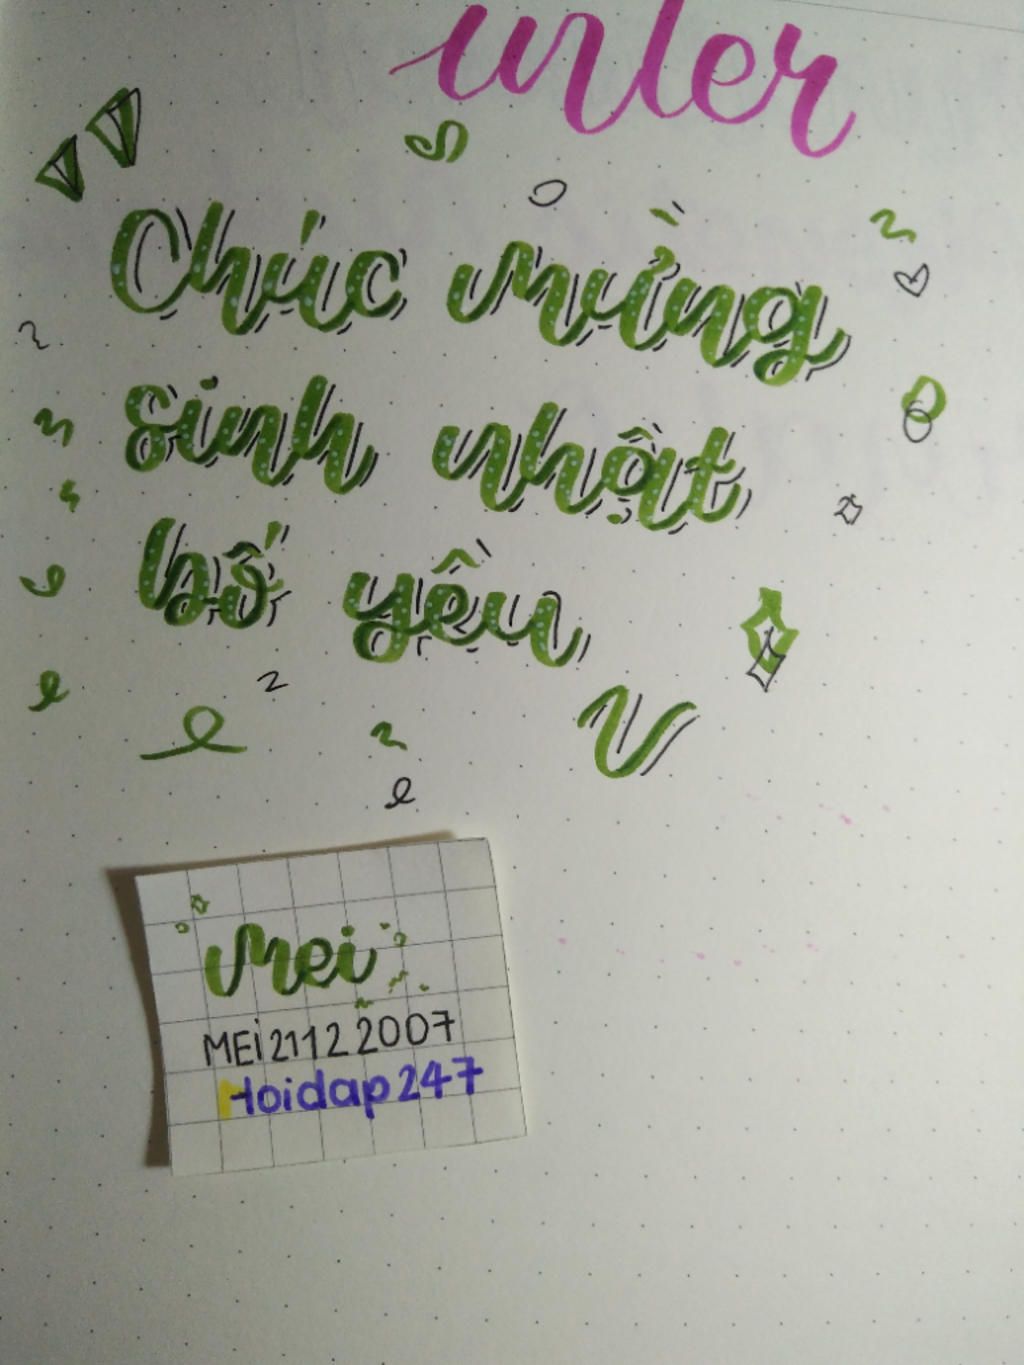 Chúc mừng
sinh nhật
bố yêu
Mei
MEi21122007
Hoidap247